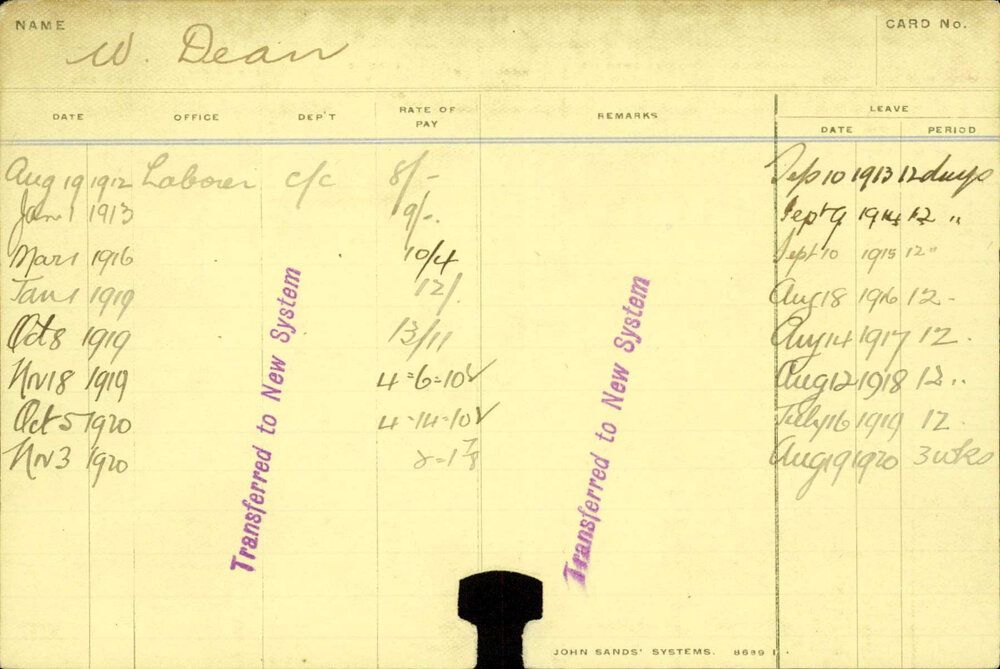 NAME CARD No.
W. Dean
LEAVE
DATE OFFICE DEP'T RATE OF PAY REMARKS DATE PERIOD
Aug 19 1912 Laborer c/c 8/- Sep 10 1913 12 days
Jan 1 1913 9/-. Sept 9 1914 12 "
Mar 1 1916 10/4 Sept 10 1915 12 "
Jan 1 1919 12/. Aug 18 1916 12 -
Oct 8 1919 13/11 Aug 14 1917 12.
Nov 18 1919 4=6=10 Aug 12 1918 12 ..
Oct 5 1920 4-14-10 July 16 1919 12.
Nov 3 1920 Aug 19 1920 3 wks
Transferred to New System
Transferred to New System
JOHN SANDS' SYSTEMS.